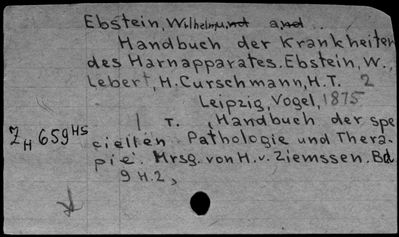 Ebstein, Wilhelm und and ..
Handbuch der Krankheiten
des Harnapparates. Ebstein, W.,
Lebert, H. Curschmann, H.T. 2
Leipzig, Vogel, 1875
| T. , Handbuch der spe
ZH 659HS
ciellen Pathologie und Thera-
pie. Hrsg. von H. v. Ziemssen. Bd
9 H.2,